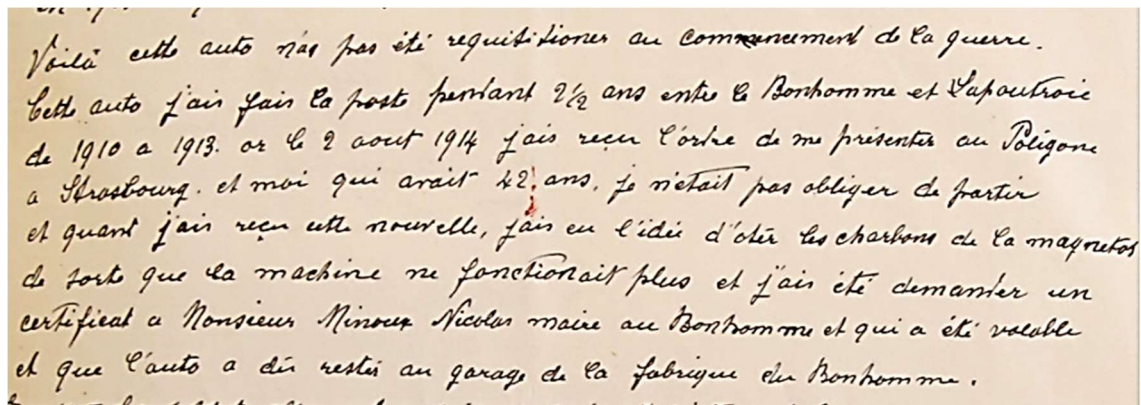 Voilà cette auto n'as pas été requisitioner au commencement de la guerre.
Cette auto j'ais fais la poste pendant 2 1/2 ans entre le Bonhomme et Lapoutroie
de 1910 a 1913. or le 2 aout 1914 j'ais reçu l'ordre de me présenter au Poligone
a Strasbourg. et moi qui avait 42 ans, je n'etait pas obliger de partir
et quant j'ais reçu cette nouvelle, j'ais eu l'idée d'otér les charbons de la magnetos
de sorte que la machine ne fonctionait plus et j'ais été demander un
certificat a Monsieur Minoux Nicolas maire au Bonhomme et qui a été valable
et que l'auto a dû restér au garage de la fabrique du Bonhomme.